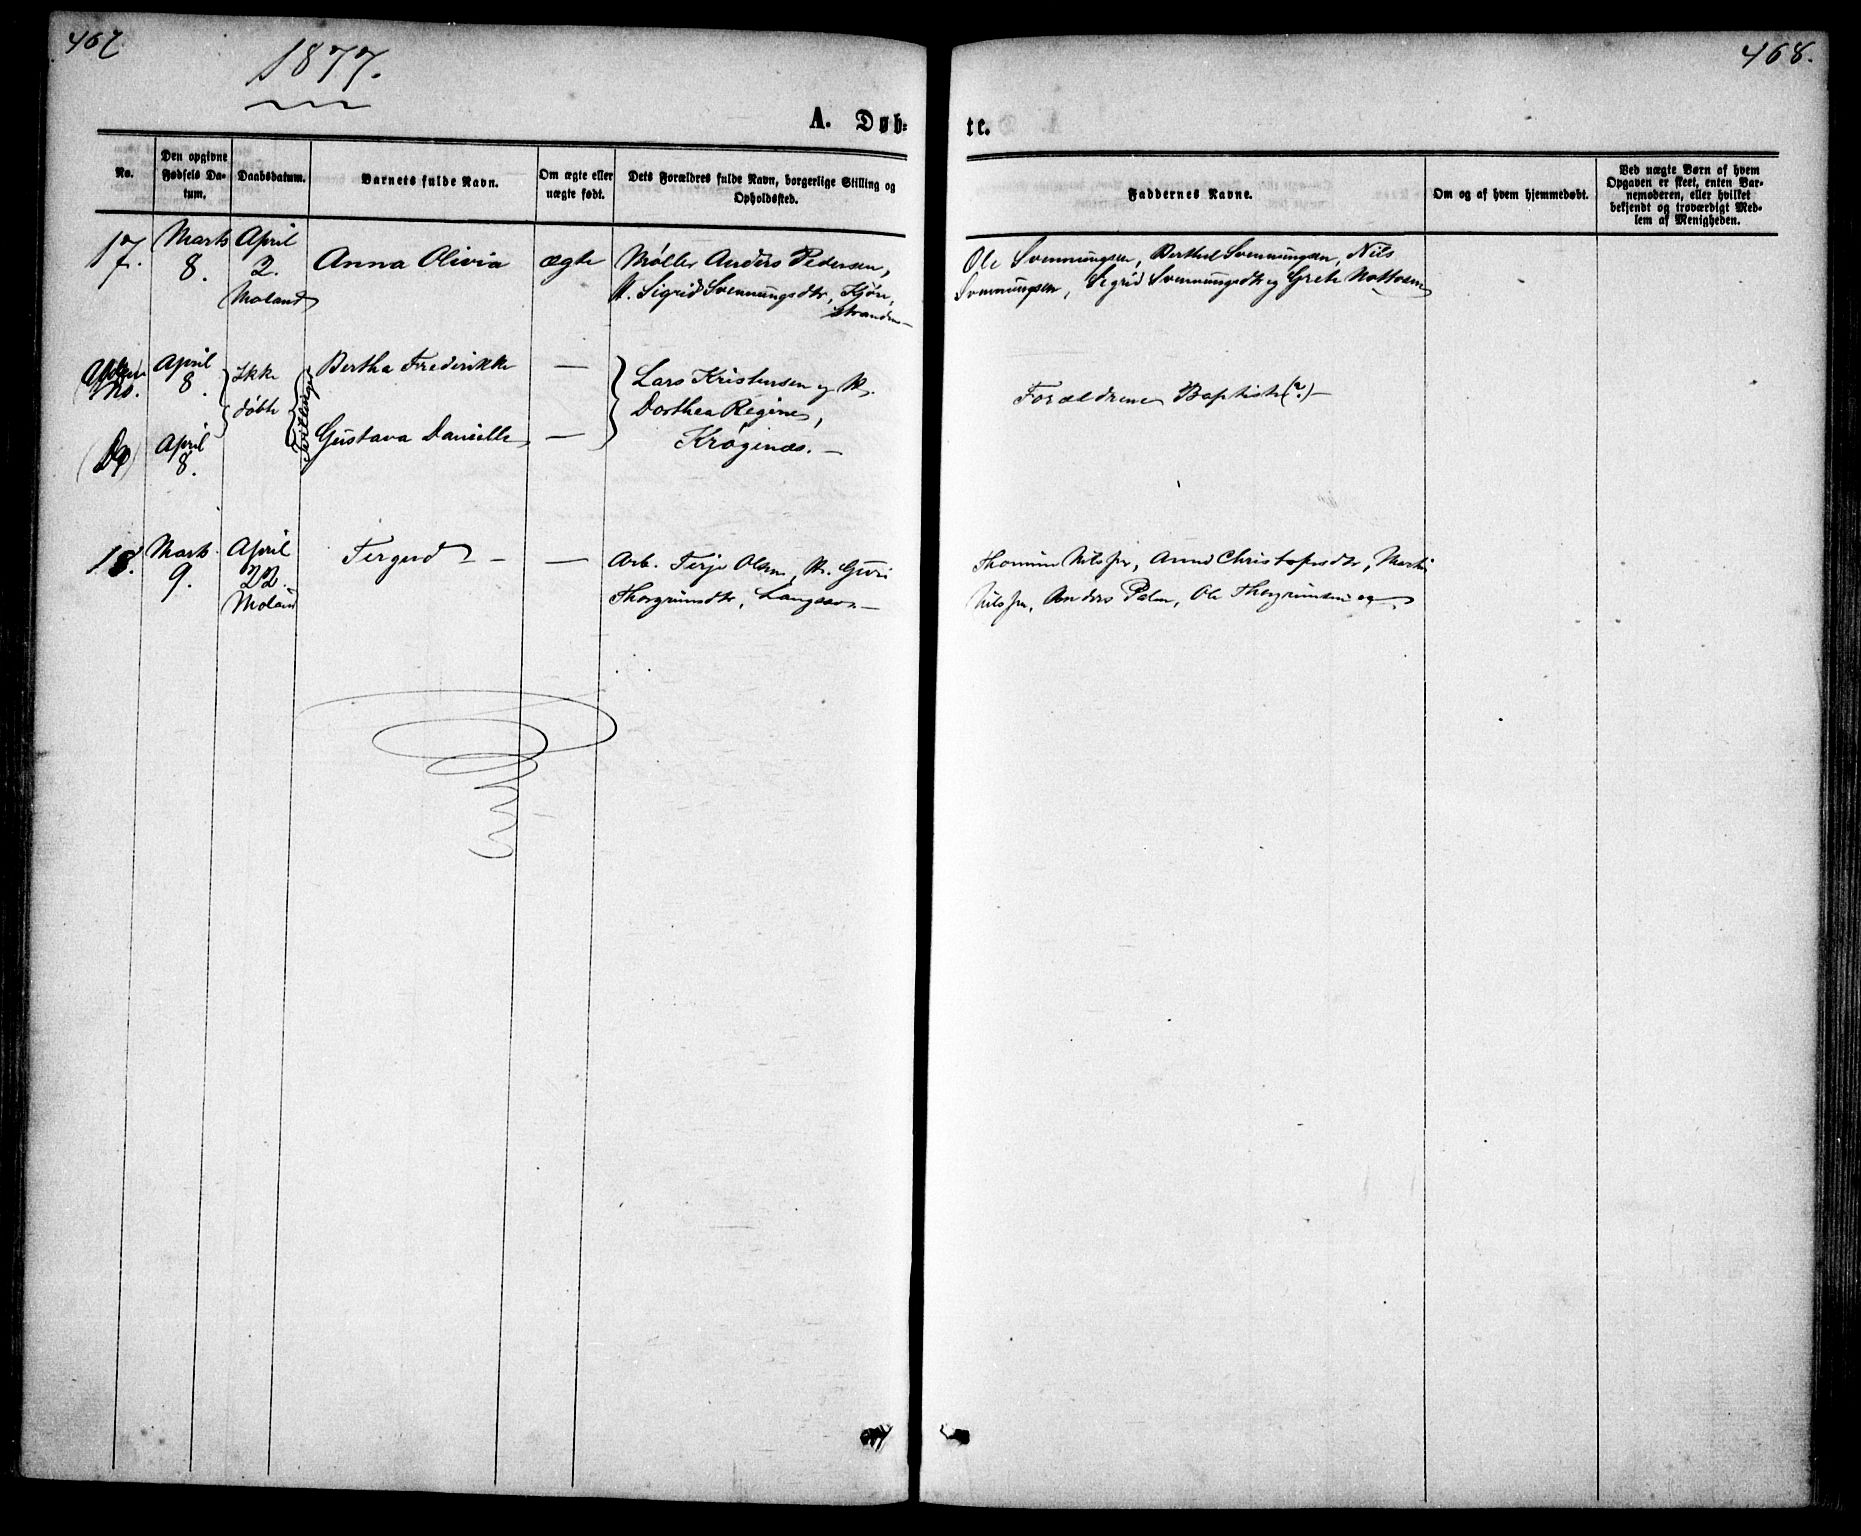 467
1877.
468.
A. Døb-
te.
No.
Den opgivne
Fødsels Da-
tum.
Daabsdatum.
Barnets fulde Navn.
Om ægte eller
uægte født.
Dets Forældres fulde Navn, borgerlige Stilling og
Opholdssted.
Faddernes Navne.
Om og af hvem hjemmedøbt.
Ved uægte Børn af hvem
Opgaven er skeet, enten Bar-
nemoderen, eller hvilket
bekjendt og troværdigt Med-
lem af Menigheden.
17.
Marts
8.
April
2.
Moland
Anna Olivia
ægte
Møller Anders Pedersen,
H. Sigrid Svennungsdtr, Kjøre,
stranden
Ole Svennungsen, Berthel Svennungsen, Nils
Svennungsen, Sigrid Svennungsdtr og Grete
No.
April
8.
Ikke
døbte
Tvillinger
Bertha Frederikke —
Lars Kristensen og H.
Dorthea Regine,
Krøgenæs. —
Forældrene Baptister (?) —
(Do)
April
8.
Gustava Danielle —
18.
Marts
9.
April
22.
Moland
Tergerd — —
Arb. Terje Olsen, H. Guri
Thorgrimsdtr,
Nilssen, Anne Christophersdtr,
Nilssen, Anders Olsen, Ole Thorgrimsen og